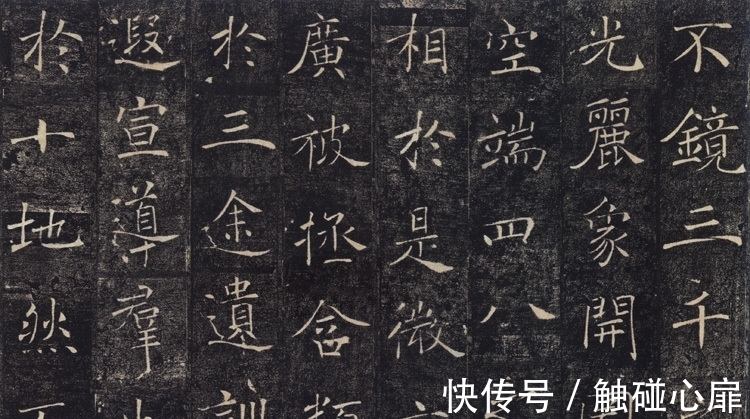 不鏡三千
光麗象開
空端四八
相於是微
廣被拯含類
於三途遺訓
遐宣導羣
於十地然
快传号 / 触碰心扉